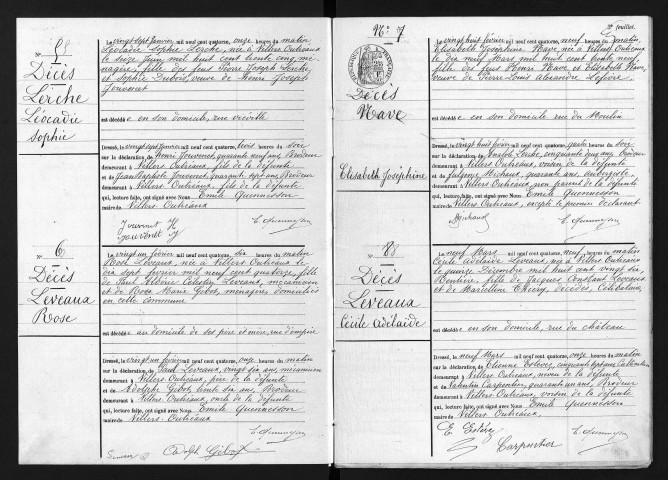 N° 5
Décès
Lerche
Léocadie
Sophie
Le vingt sept Janvier mil neuf cent quatorze, onze heures du matin
Léocadie Sophie Lerche, née à Villers Outréaux
le seize Juin mil huit cent trente cinq, mé-
nagère, fille des feus Pierre Joseph Lerche
et Sophie Dubois, veuve de Henri Joseph
Jouvenet
est décédée en son domicile, rue
Dressé, le vingt sept Janvier mil neuf cent quatorze, trois heures du soir
sur la déclaration de Henri Jouvenet, quarante neuf ans, Brodeur
demeurant à Villers Outréaux, fils de la défunte
et de Jean Baptiste Jouvenet, quarante sept ans, Brodeur
demeurant à Villers Outréaux, fils de la défunte
qui, lecture faite, ont signé avec Nous Emile Quennesson
maire de Villers Outréaux
Jouvenet H
Jouvenet J
E. Quennesson
N° 6
Décès
Leveaux
Rose
Le vingt un février mil neuf cent quatorze, six heures du matin
Rose Leveaux, née à Villers Outréaux le
dix sept février mil neuf cent quatorze, fille
de Paul Célestin Leveaux, mécanicien
et de Rose Marie Gibot, ménagère, domiciliés
en cette commune
est décédée au domicile de ses père et mère, rue d'empire
Dressé, le vingt un février mil neuf cent quatorze, onze heures du matin
sur la déclaration de Paul Leveaux, vingt six ans, mécanicien
demeurant à Villers Outréaux, père de la défunte
et de Adolphe Gibot, trente six ans, Brodeur
demeurant à Villers Outréaux, oncle de la défunte
qui, lecture faite, ont signé avec Nous Emile Quennesson
maire de Villers Outréaux
E. Quennesson
Adolph Gibot
2e feuillet.
N° 7
Décès
Nave
Elisabeth Joséphine
Le vingt huit février mil neuf cent quatorze, neuf heures du matin
Elisabeth Joséphine Nave, née à Villers Outréaux
le dix neuf Mars mil huit cent trente neuf,
fille des feus Henri Nave et Elisabeth Nave,
veuve de Pierre Louis Alexandre Lefèvre
est décédée en son domicile rue du Moulin
Dressé, le vingt huit février mil neuf cent quatorze, quatre heures du soir
sur la déclaration de Lerche, cinquante deux ans, Brodeur
demeurant à Villers Outréaux, voisin de la défunte
et de Eugène Michaud, quarante ans, aubergiste
demeurant à Villers Outréaux, non parent de la défunte
qui, lecture faite, ont signé avec Nous Emile Quennesson
maire de Villers Outréaux, excepté le premier déclarant
Michaud
E. Quennesson
N° 8
Décès
Leveaux
Cécile Adélaïde
Le neuf Mars mil neuf cent quatorze, neuf heures du matin
Cécile Adélaïde Leveaux, née à Villers Outréaux
le quinze Décembre mil huit cent vingt six,
Rentière, fille de Jacques Constant Leveaux
et de Marcelline Théry, décédés, Célibataire
est décédée en son domicile, rue du château
Dressé, le neuf Mars mil neuf cent quatorze, onze heures du matin
sur la déclaration de Etienne Estevez, cinquante sept ans, Cultivateur
demeurant à Villers Outréaux, neveu de la défunte
et de Valentin Carpentier, quarante un ans, Brodeur
demeurant à Villers Outréaux, voisin de la défunte
qui, lecture faite, ont signé avec Nous Emile Quennesson
maire de Villers Outréaux.
E. Quennesson
Carpentier